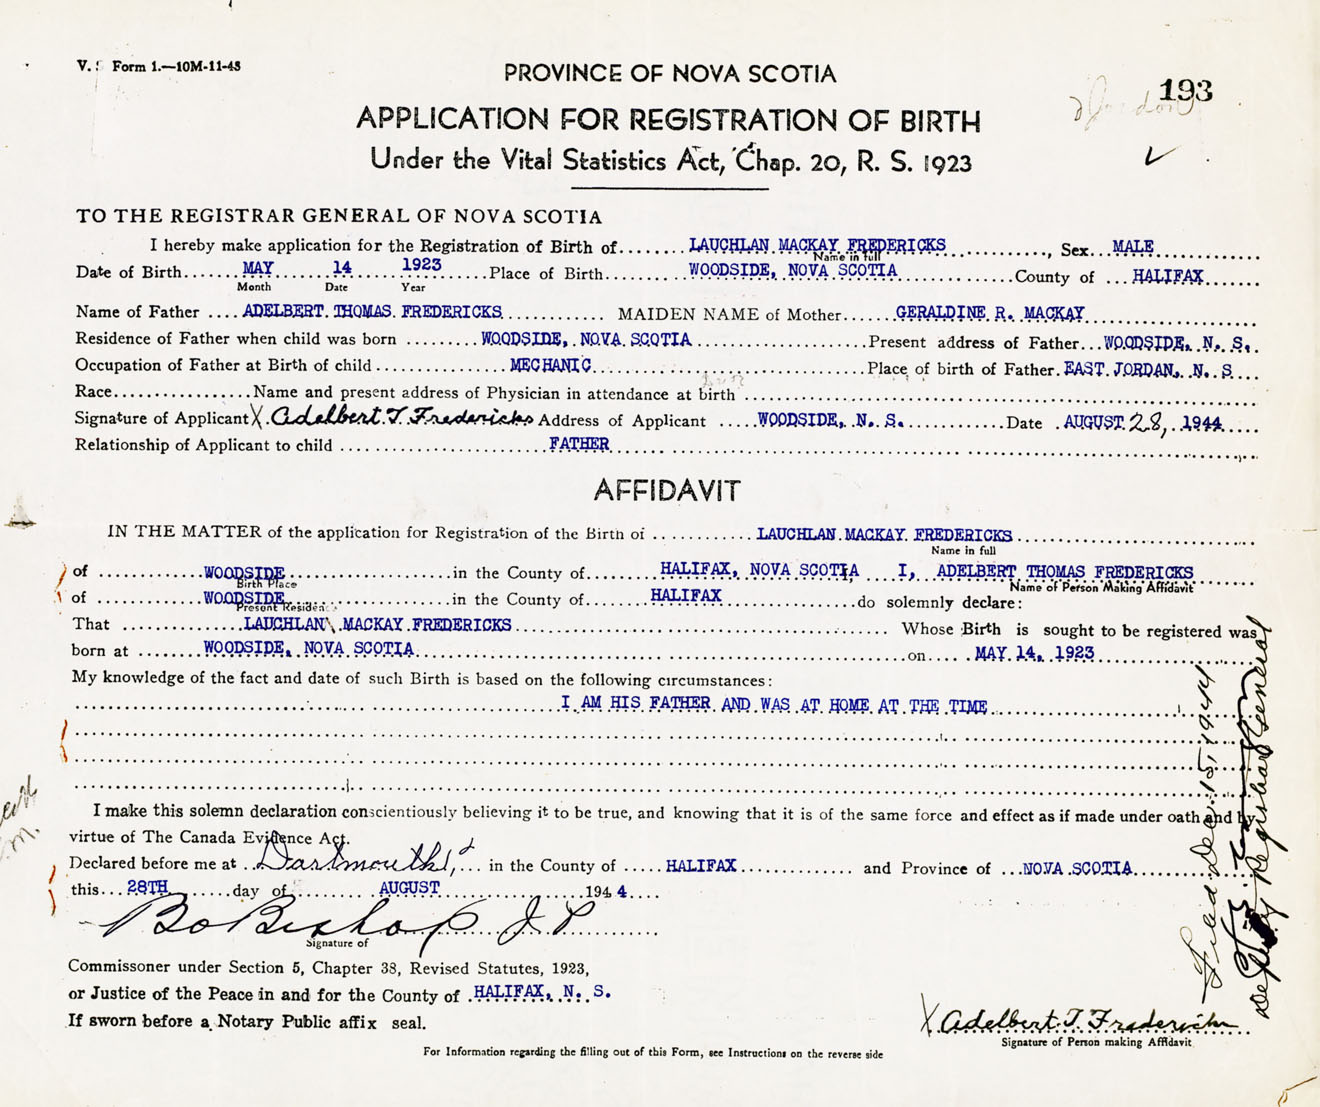 V. S Form 1.—10M-11-43
PROVINCE OF NOVA SCOTIA
193
APPLICATION FOR REGISTRATION OF BIRTH
Under the Vital Statistics Act, Chap. 20, R. S. 1923
TO THE REGISTRAR GENERAL OF NOVA SCOTIA
I hereby make application for the Registration of Birth of........ LAUCHLAN MACKAY FREDERICKS ............, Sex MALE
Name in full
Date of Birth....... MAY 14 1923 ......Place of Birth............ WOODSIDE, NOVA SCOTIA ............County of ... HALIFAX
Month Date Year
Name of Father .... ADELBERT THOMAS FREDERICKS ............ MAIDEN NAME of Mother...... GERALDINE R. MACKAY
Residence of Father when child was born ......... WOODSIDE, NOVA SCOTIA ............Present address of Father... WOODSIDE, N. S.
Occupation of Father at Birth of child ............ MECHANIC ............Place of birth of Father. EAST JORDAN, N. S
Race.................Name and present address of Physician in attendance at birth
Signature of Applicant X Adelbert T. Fredericks Address of Applicant ..... WOODSIDE, N. S. ............Date . AUGUST 28, 1944
Relationship of Applicant to child ............ FATHER
AFFIDAVIT
IN THE MATTER of the application for Registration of the Birth of ............ LAUCHLAN MACKAY FREDERICKS
Name in full
of ............ WOODSIDE ............in the County of........ HALIFAX, NOVA SCOTIA I, ADELBERT THOMAS FREDERICKS
Birth Place Name of Person Making Affidavit
of ............ WOODSIDE ............in the County of........ HALIFAX ............do solemnly declare:
Present Residence
That ............ LAUCHLAN MACKAY FREDERICKS ............ Whose Birth is sought to be registered was
born at ........ WOODSIDE, NOVA SCOTIA ............on..... MAY 14, 1923
My knowledge of the fact and date of such Birth is based on the following circumstances:
I AM HIS FATHER AND WAS AT HOME AT THE TIME
I make this solemn declaration conscientiously believing it to be true, and knowing that it is of the same force and effect as if made under oath and by
virtue of The Canada Evidence Act.
Declared before me at .. Dartmouth, ... in the County of ..... HALIFAX ............ and Province of ... NOVA SCOTIA
this... 28TH ......day of............ AUGUST ............194 4
Bo Bishop J P
Signature of
Commissoner under Section 5, Chapter 38, Revised Statutes, 1923,
or Justice of the Peace in and for the County of . HALIFAX, N. S.
If sworn before a Notary Public affix seal.
X Adelbert T. Fredericks
Signature of Person making Affidavit
For Information regarding the filling out of this Form, see Instructions on the reverse side
Filed Dec. 15, 1944
Deputy Registrar General